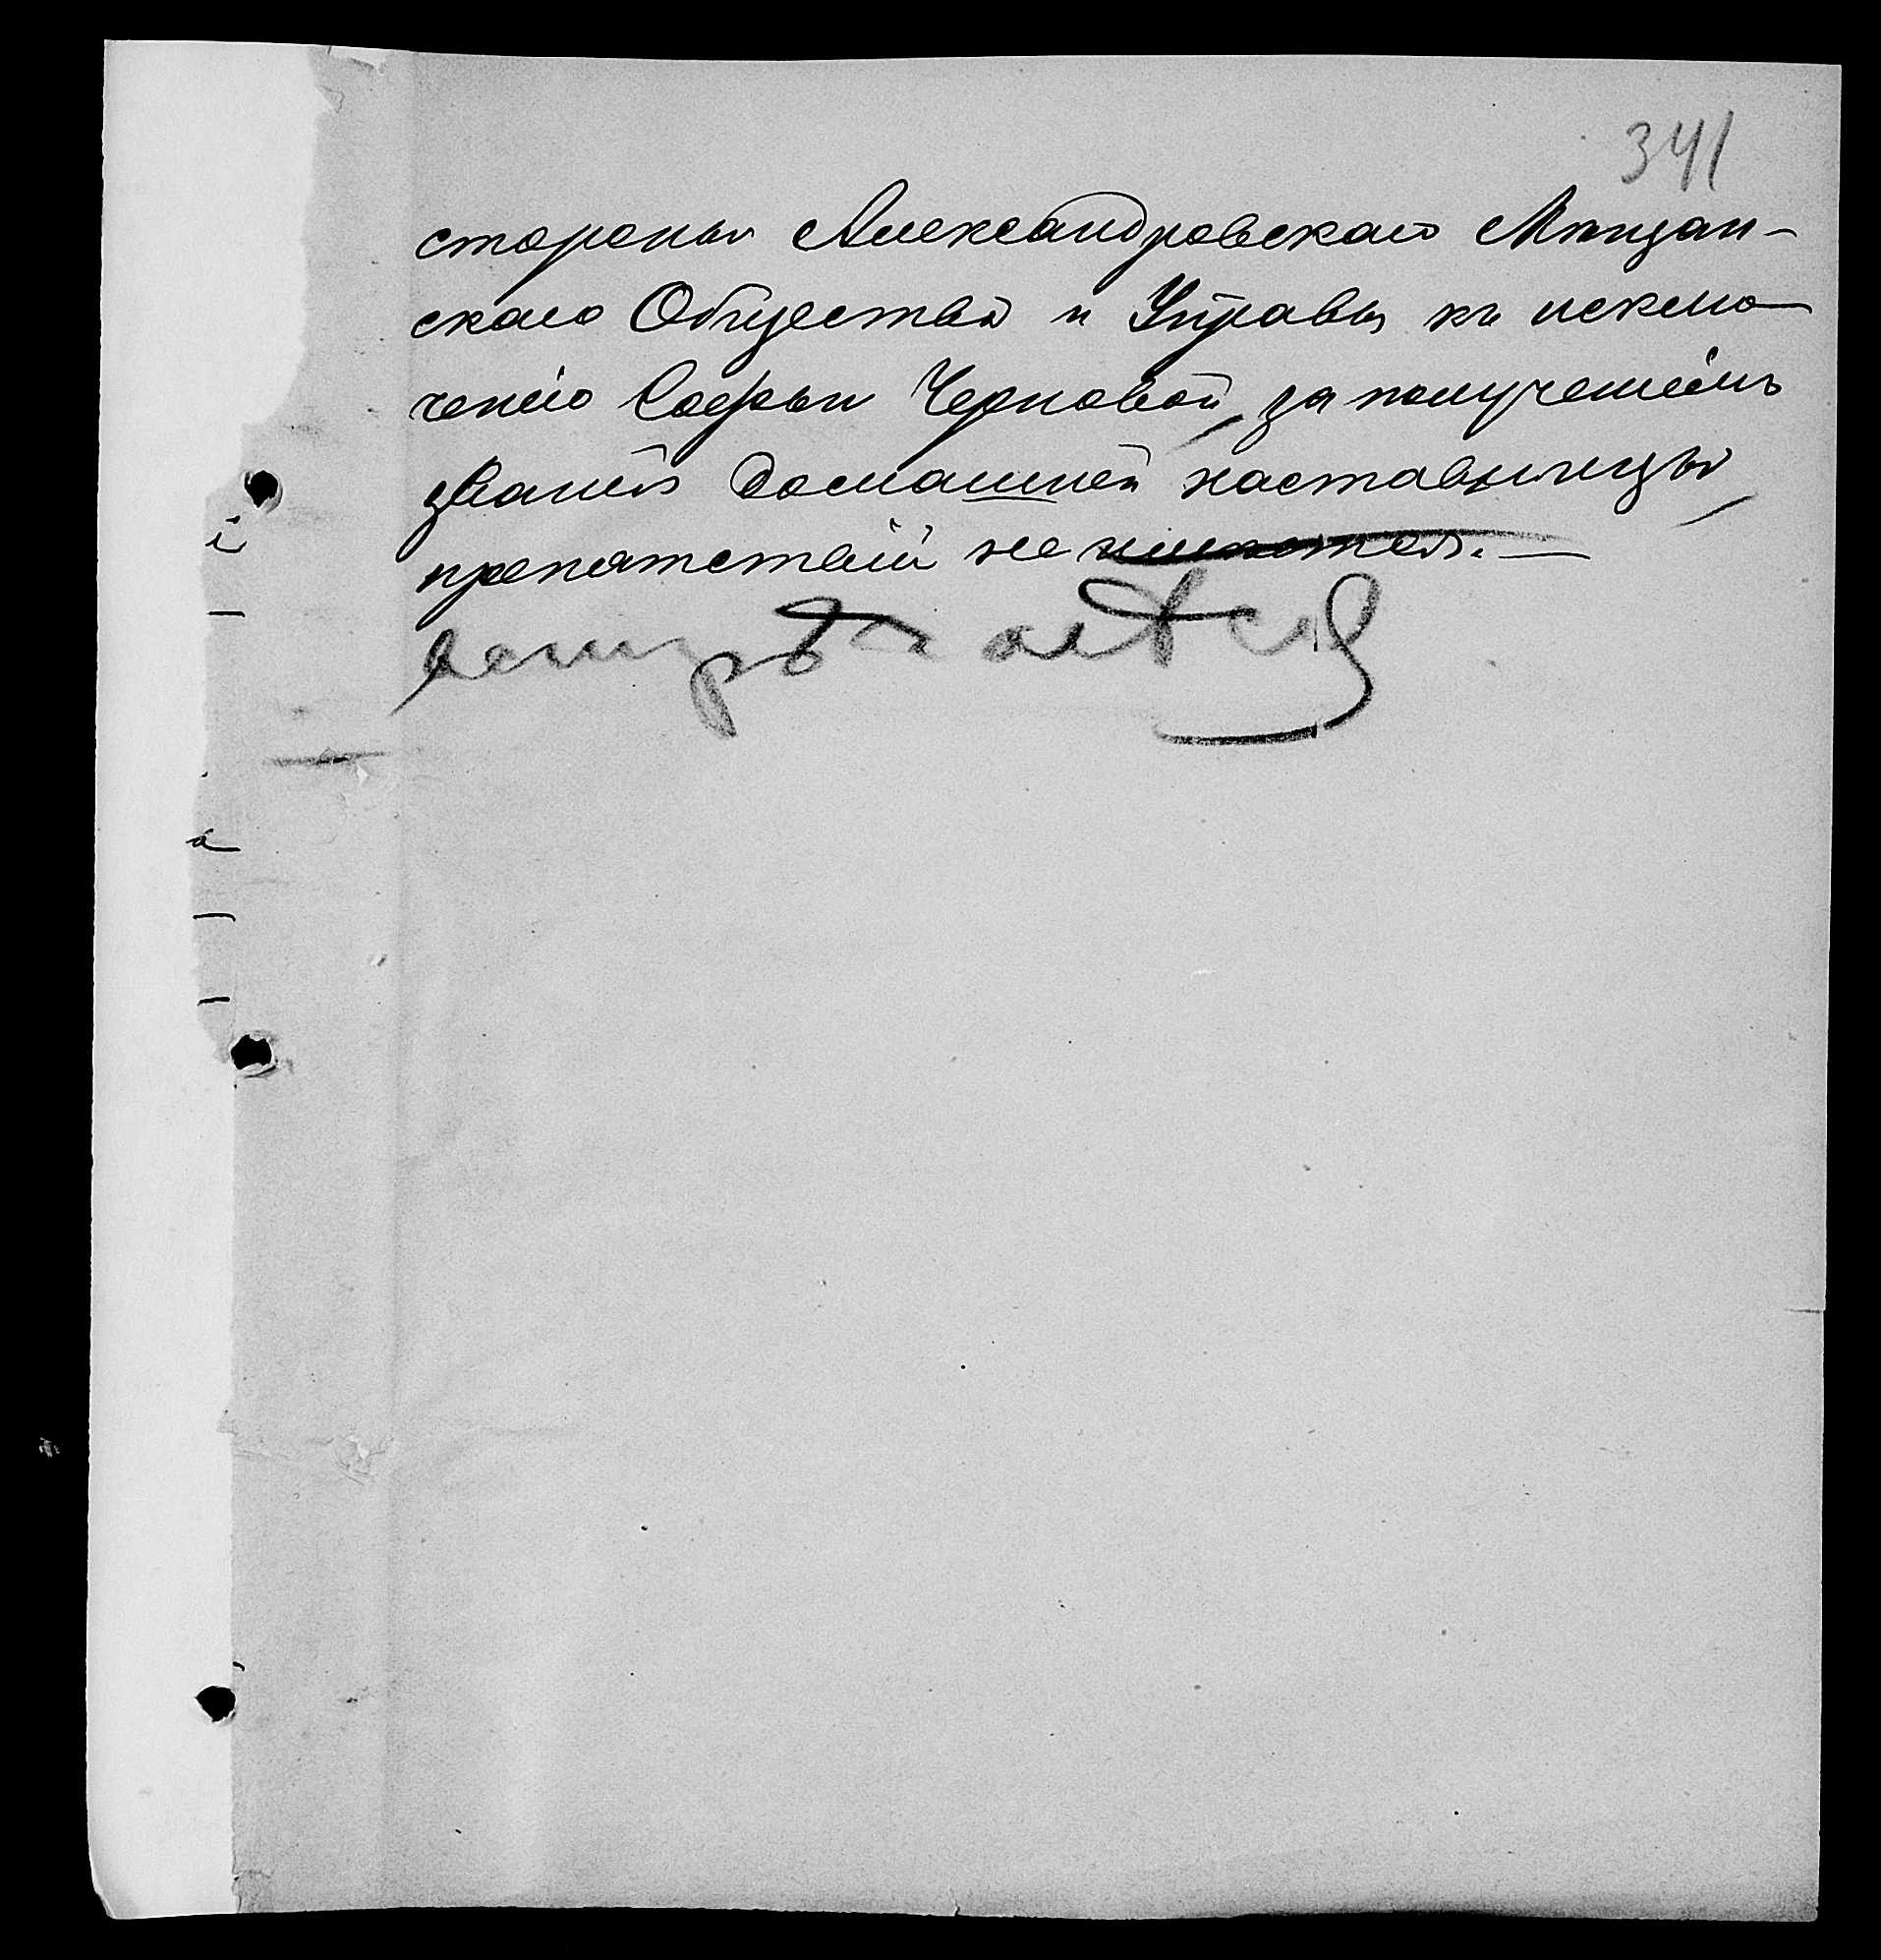 341
стороны Александровскаго Мѣщан-
скаго Общества и Управы къ исклю-
ченію Софьи Черновой, за полученіемъ
званія домашней наставницы,
препятствій не имѣется. —
встрѣчается